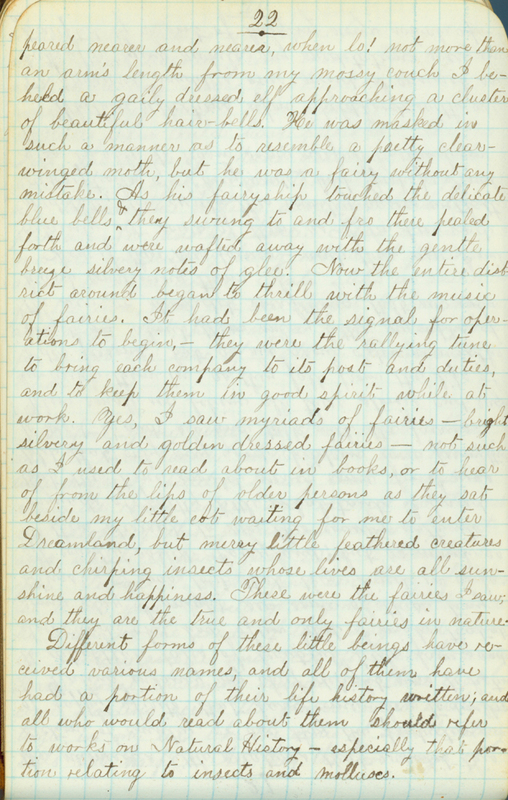 22
peared nearer and nearer, when lo! not more than
an arm's length from my mossy couch I be-
held a gaily dressed elf approaching a cluster
of beautiful hair-bells. He was masked in
such a manner as to resemble a pretty clear-
winged moth, but he was a fairy without any
mistake. As his fairyship touched the delicate
blue bells & they swung to and fro there pealed
forth and were wafted away with the gentle
breeze silvery notes of glee. Now the entire dist
rict around began to thrill with the music
of fairies. It had been the signal for oper-
ations to begin,- they were the rallying tune
to bring each company to its post and duties,
and to keep them in good spirit while at
work. Yes, I saw myriads of fairies - bright
silvery and golden dressed fairies - not such
as I used to read about in books, or to hear
of from the lips of older persons as they sat
beside my little cot waiting for me to enter
Dreamland, but merry little feathered creatures
and chirping insects whose lives are all sun-
shine and happiness. These were the fairies I saw;
and they are the true and only fairies in nature.
Different forms of these little beings have re-
ceived various names, and all of them have
had a portion of their life history written; and
all who would read about them should refer
to works on Natural History - especially that por-
tion relating to insects and molluscs.